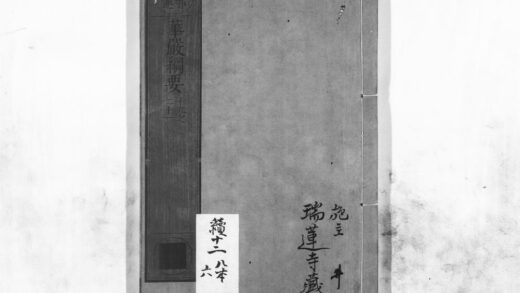 施主 井
瑞蓮寺藏
續十二
八本
六
華嚴綱要